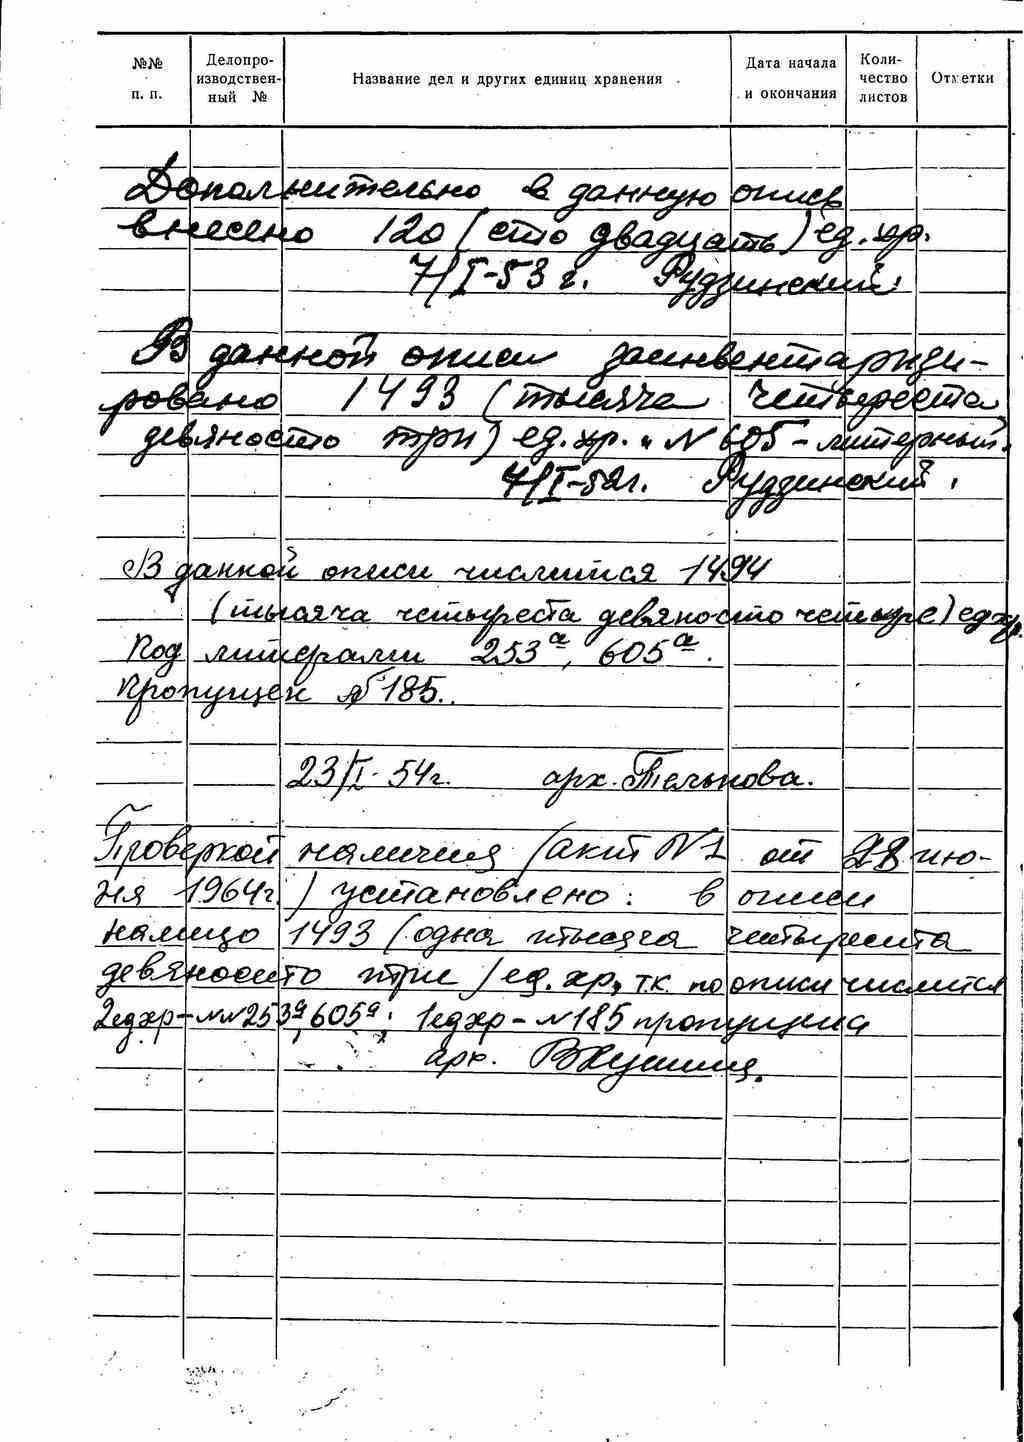 №№ п. п.
Делопро-
изводствен-
ный №
Название дел и других единиц хранения
Дата начала
и окончания
Коли-
чество
листов
Отметки
Дополнительно в данную опись
внесено 120 (сто двадцать) ед. хр.
7/I-53 г. Рудзинский.
В данной описи заинвентаризи-
ровано 1493 (тысяча четыреста
девяносто три) ед. хр. и N 605 - литерный.
7/I-52г. Рудзинский.
В данной описи числится 1494
(тысяча четыреста девяносто четыре) ед хр.
Под литерами 253а, 605а.
Пропущен № 185.
23/I-54г. арх.
Проверкой наличия (акт N 1 от 28 ию-
ня 1964г.) установлено: в описи
налицо 1493 (одна тысяча четыреста
девяносто три) ед. хр, т.к. по описи числится
2 ед хр - NN 253а, 605а; 1 ед хр - N 185 пропущена
арх.